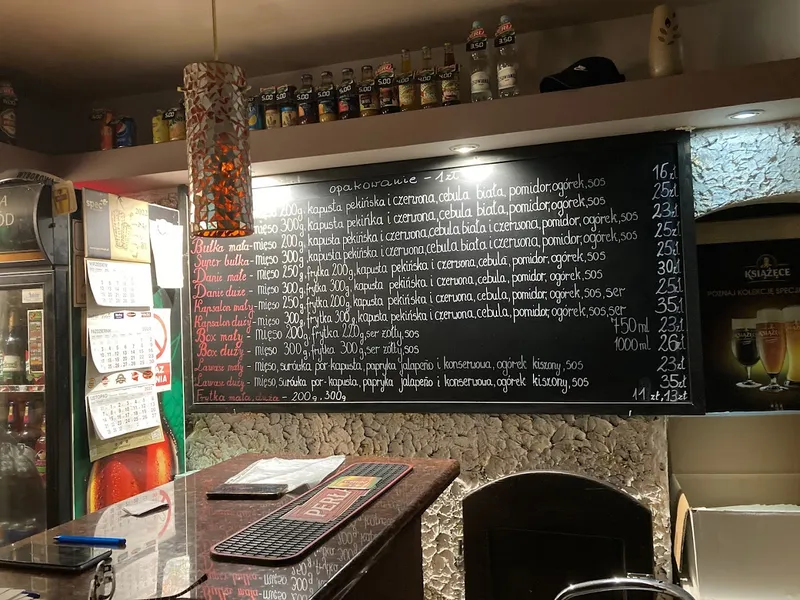 3.50 3.50
5.00 5.00 5.00 5.00 4.00 4.00 4.00
opakowanie - 1zł
200g, kapusta pekińska i czerwona, cebula biała, pomidor, ogórek, sos 16zł
300g, kapusta pekińska i czerwona, cebula biała, pomidor, ogórek, sos 25zł
Bułka mała - mięso 200g, kapusta pekińska i czerwona, cebula biała i czerwona, pomidor, ogórek, sos 23zł
Super bułka - mięso 300g, kapusta pekińska i czerwona, cebula biała i czerwona, pomidor, ogórek, sos 25zł
Danie małe - mięso 250g, frytka 200g, kapusta pekińska i czerwona, cebula, pomidor, ogórek, sos 25zł
Danie duże - mięso 300g, frytka 300g, kapusta pekińska i czerwona, cebula, pomidor, ogórek, sos 30zł
Kapsalon mały - mięso 250g, frytka 200g, kapusta pekińska i czerwona, cebula, pomidor, ogórek, sos, ser 25zł
Kapsalon duży - mięso 300g, frytka 300g, kapusta pekińska i czerwona, cebula, pomidor, ogórek, sos, ser 35zł
Box mały - mięso 200g, frytka 220g, ser żółty, sos 750 ml 23zł
Box duży - mięso 300g, frytka 300g, ser żółty, sos 1000 ml 26zł
Lawasz mały - mięso, surówka por-kapusta, papryka jalapeño i konserwowa, ogórek kiszony, sos 23zł
Lawasz duży - mięso, surówka por-kapusta, papryka jalapeño i konserwowa, ogórek kiszony, sos 35zł
Frytka mała, duża - 200g, 300g 11 zł, 13zł
KSIĄŻĘCE
POZNAJ KOLEKCJĘ
PERŁA